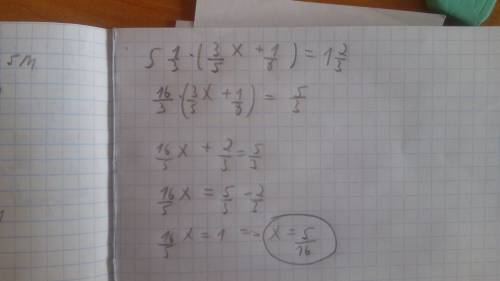 5 1/3 · (3/5 x + 1/8) = 1 2/3
16/3 · (3/5 x + 1/8) = 5/3
16/5 x + 2/3 = 5/3
16/5 x = 5/3 - 2/3
16/5 x = 1 => x = 5/16